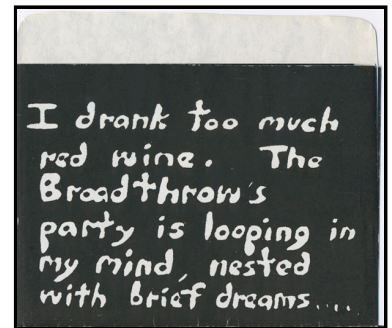 I drank too much
red wine. The
Broadthrow's
party is looping in
my mind, nested
with brief dreams....